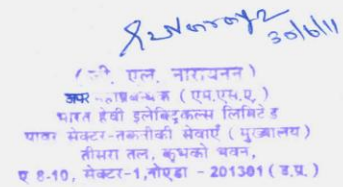 30/6/11
एल. नारायनन )
अपर महाप्रबन्धक (एम.एस.ए.)
भारत हेवी इलेक्ट्रिकल्स लिमिटेड
पावर सेक्टर-तकनीकी सेवाएँ (मुख्यालय)
तीसरा तल, कृभको भवन,
ए 8-10, सेक्टर-1, नौएडा - 201301 (उ.प्र.)